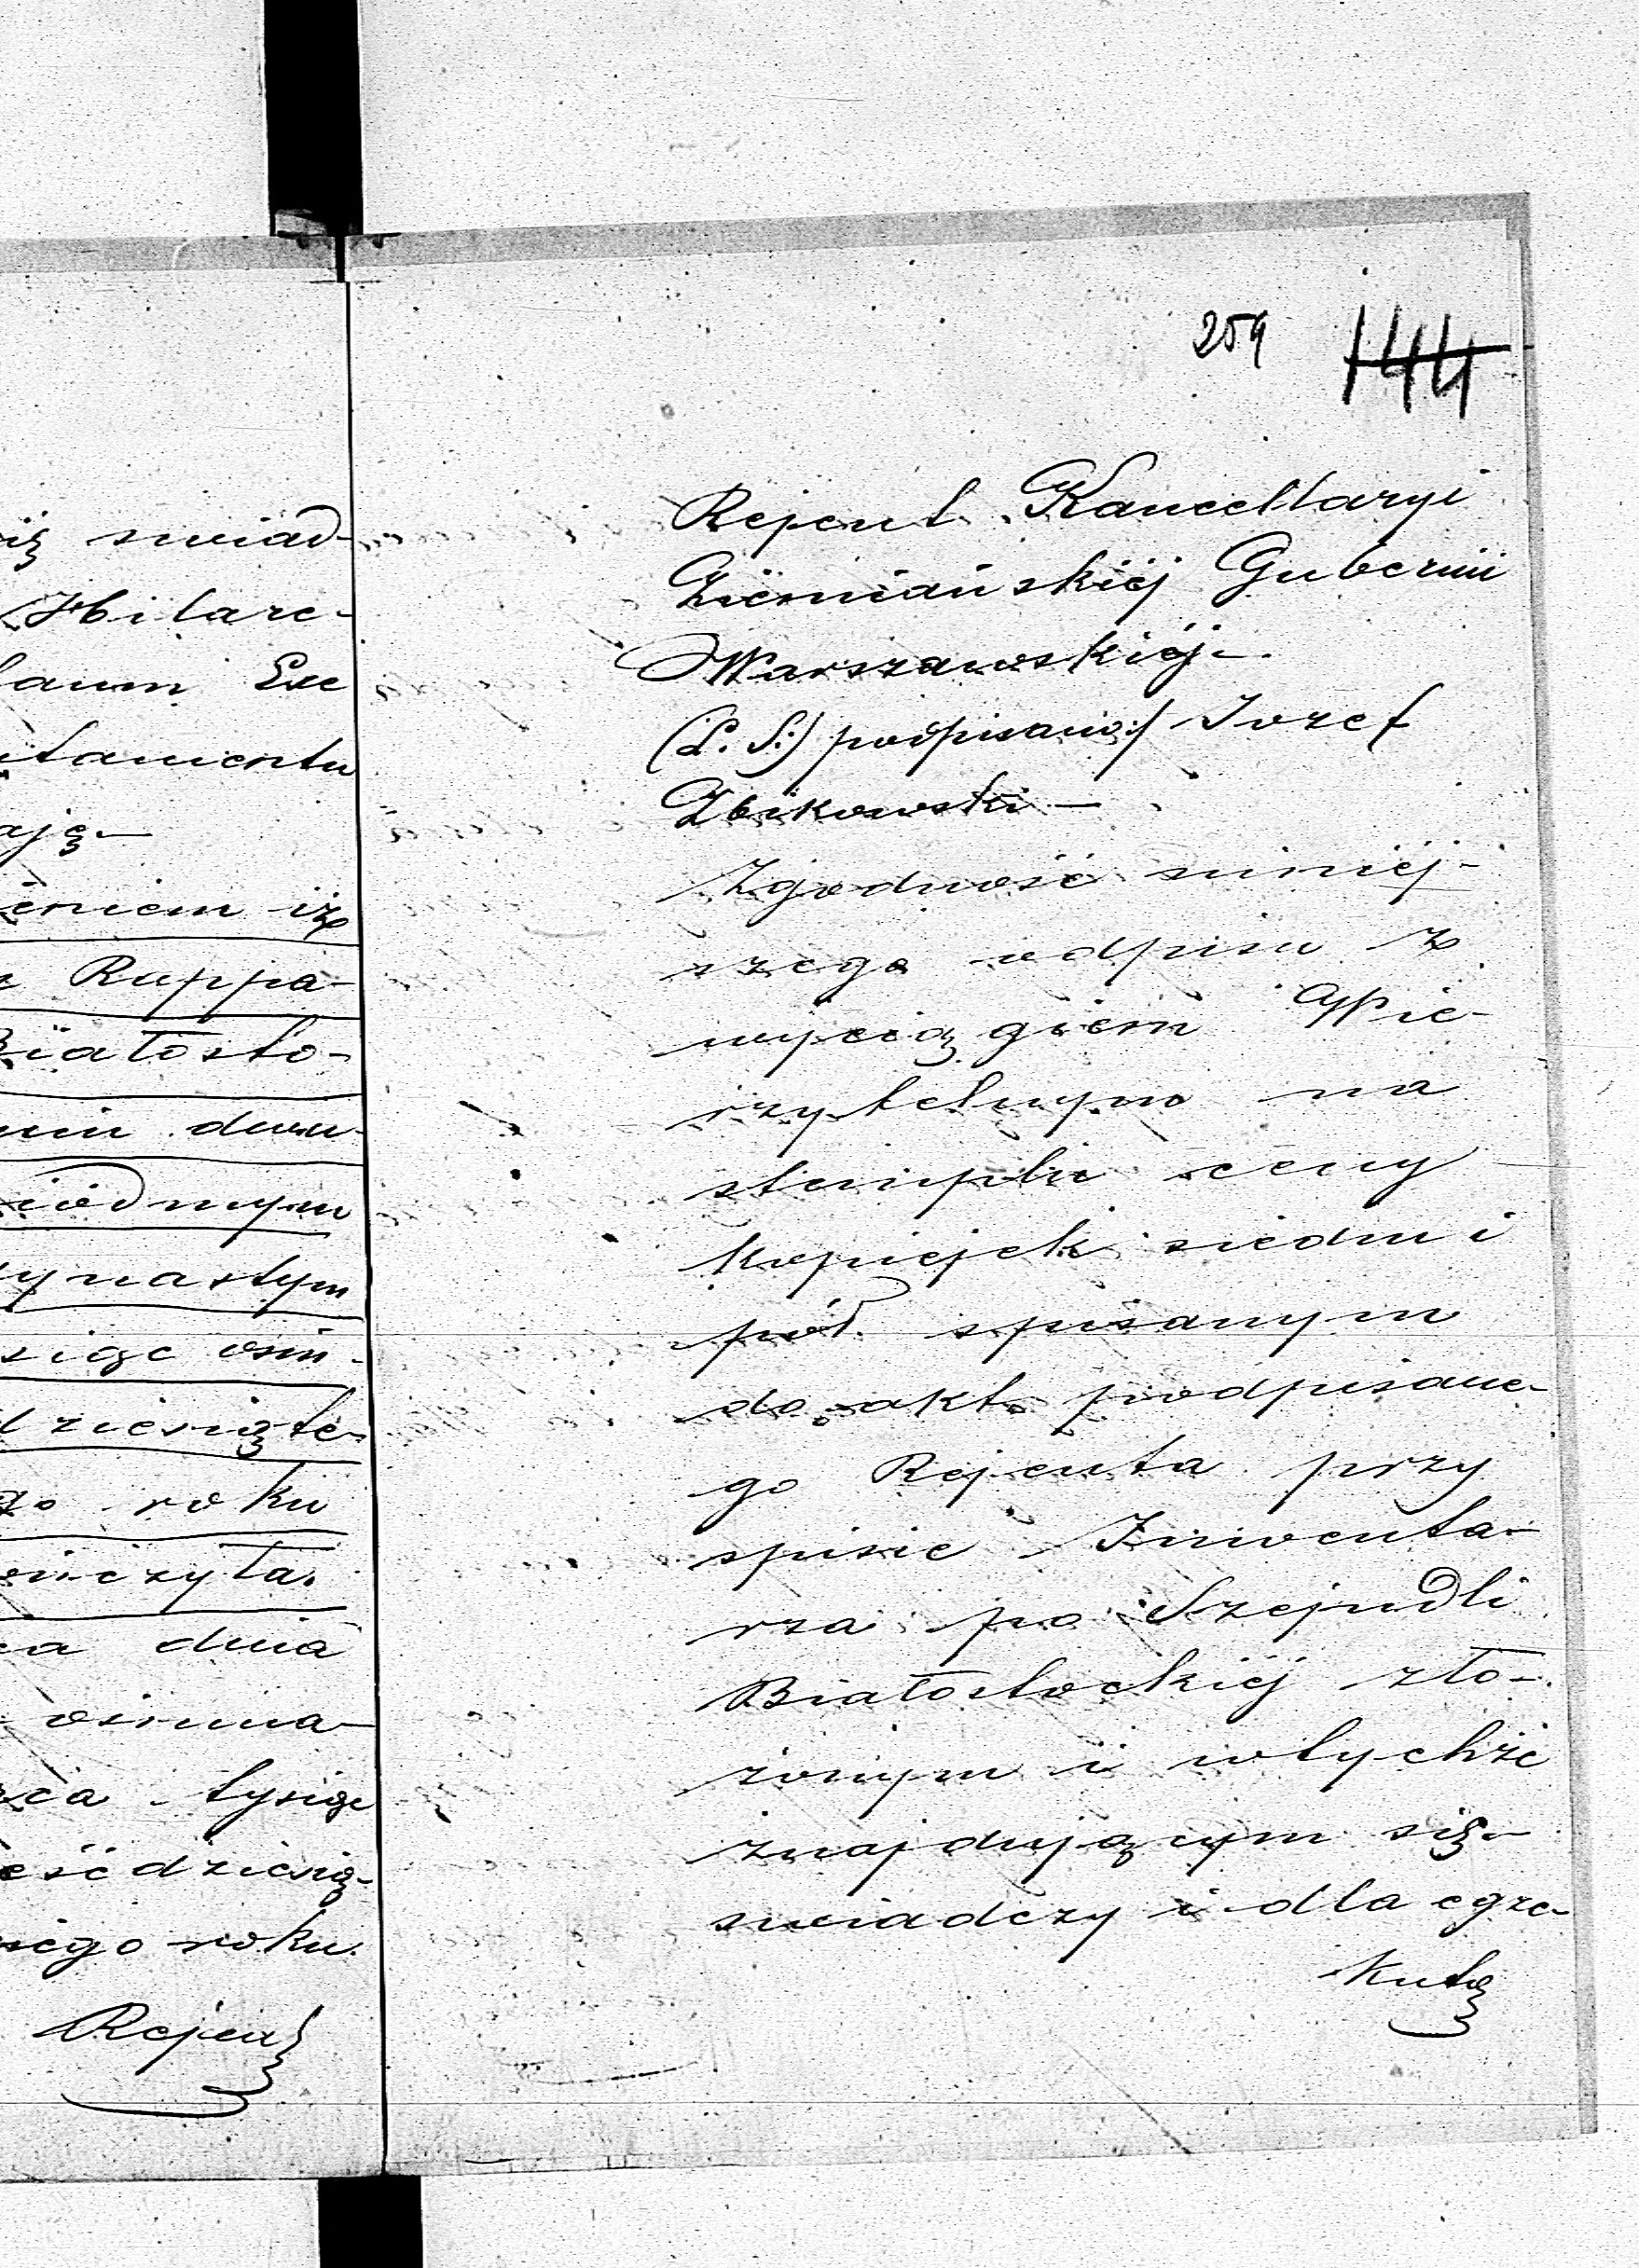 się swiad-
Hilare-
laum Exe
stamentu
ają
eniem iż
Ruppa-
Białosto-
dwu-
siódmym
ynastym
siąc osm-
dziesiąte-
go roku
niczyta.
ca dnia
osimna-
ca tysiąc
eśćdziesią-
ego roku.
Rejent
259 144
Rejent Kancellaryi
Ziemiańskiéj Gubernii
Warszawskiéj.
(L. S.) podpisano:/ Jozef
Zbikowski –
Zgodność niniéj-
szego odpisu z
wyciągiem Wie-
rzytelnym na
stemplu ceny
kopiejek siedm i
pół spisanym
do akt podpisane-
go Rejenta przy
spisie Inwenta-
rza po Szejndli
Białostockiéj zło-
żonym i wtychże
znajdującym się
swiadczy i dla egze-
kutą